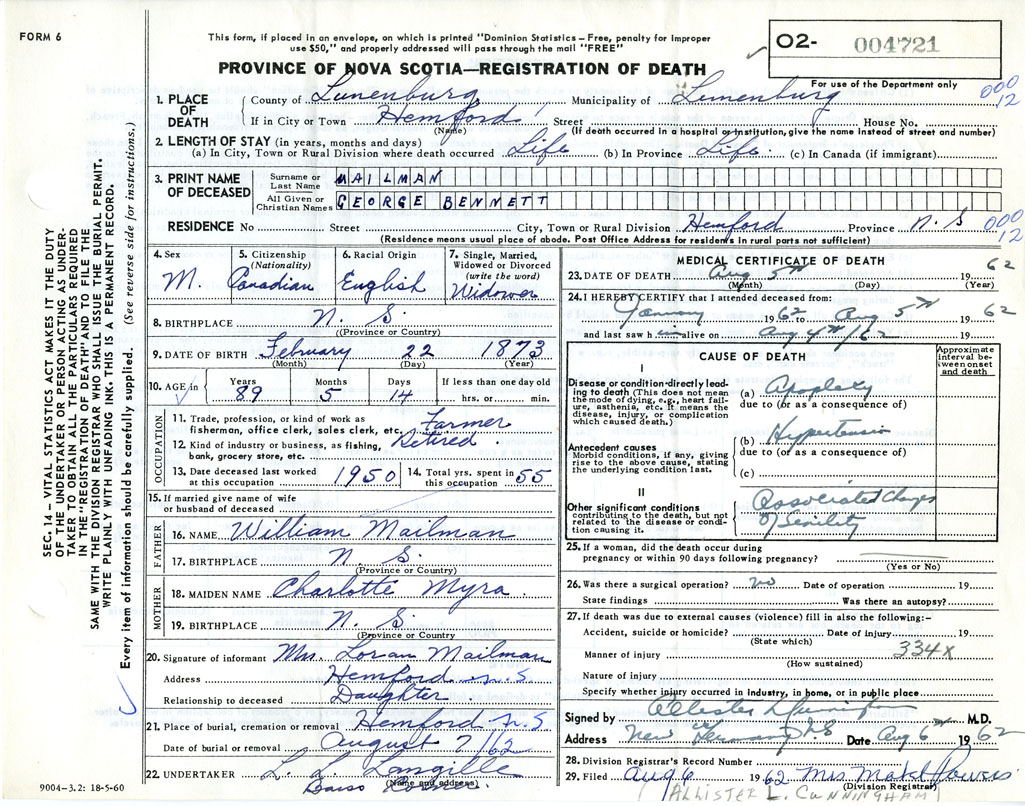 FORM 6
This form, if placed in an envelope, on which is printed "Dominion Statistics – Free, penalty for improper
use $50," and properly addressed will pass through the mail "FREE"
02- 004721
For use of the Department only
PROVINCE OF NOVA SCOTIA—REGISTRATION OF DEATH
000
12
1. PLACE OF DEATH County of Lunenburg Municipality of Lunenburg
If in City or Town Hemford Street House No.
(Name) (If death occurred in a hospital or institution, give the name instead of street and number)
2. LENGTH OF STAY (in years, months and days)
(a) In City, Town or Rural Division where death occurred Life (b) In Province Life (c) In Canada (if immigrant)
3. PRINT NAME OF DECEASED Surname or Last Name MAILMAN
All Given or Christian Names GEORGE BENNETT
RESIDENCE No Street City, Town or Rural Division Hemford Province N. S
(Residence means usual place of abode. Post Office Address for residents in rural parts not sufficient)
000
12
SEC. 14 – VITAL STATISTICS ACT MAKES IT THE DUTY
OF THE UNDERTAKER OR PERSON ACTING AS UNDER-
TAKER TO OBTAIN ALL THE PARTICULARS REQUIRED
IN THE "REGISTRATION OF DEATH" AND TO FILE THE
SAME WITH THE DIVISION REGISTRAR WHO SHALL ISSUE THE BURIAL PERMIT.
WRITE PLAINLY WITH UNFADING INK. THIS IS A PERMANENT RECORD.
Every item of information should be carefully supplied. (See reverse side for instructions.)
4. Sex M.
5. Citizenship (Nationality) Canadian
6. Racial Origin English
7. Single, Married, Widowed or Divorced (write the word) Widower
8. BIRTHPLACE N. S.
(Province or Country)
9. DATE OF BIRTH February 22 1873
(Month) (Day) (Year)
10. AGE in Years 89 Months 5 Days 14 If less than one day old hrs. or min.
OCCUPATION
11. Trade, profession, or kind of work as fisherman, office clerk, sales clerk, etc. Farmer
12. Kind of industry or business, as fishing, bank, grocery store, etc. Retired
13. Date deceased last worked at this occupation 1950
14. Total yrs. spent in this occupation 55
15. If married give name of wife or husband of deceased
FATHER
16. NAME William Mailman
17. BIRTHPLACE N. S.
(Province or Country)
MOTHER
18. MAIDEN NAME Charlotte Myra
19. BIRTHPLACE N. S.
(Province or Country)
20. Signature of informant Mrs. Loran Mailman
Address Hemford N. S
Relationship to deceased Daughter
21. Place of burial, cremation or removal Hemford N. S
Date of burial or removal August 7/62
22. UNDERTAKER L. L. Langille
(Name and address)
9004-3.2: 18-5-60
MEDICAL CERTIFICATE OF DEATH
23. DATE OF DEATH Aug 5th 1962
(Month) (Day) (Year)
24. I HEREBY CERTIFY that I attended deceased from:
January 1962 to Aug 5th 1962
and last saw him alive on Aug 4th/62
CAUSE OF DEATH
Approximate interval between onset and death
I
Disease or condition directly leading to death (This does not mean the mode of dying, e.g., heart failure, asthenia, etc. It means the disease, injury, or complication which caused death.)
(a) Apoplexy
due to (or as a consequence of)
Antecedent causes
Morbid conditions, if any, giving rise to the above cause, stating the underlying condition last.
(b) Hypertension
due to (or as a consequence of)
(c)
II
Other significant conditions contributing to the death, but not related to the disease or condition causing it.
Associated Changes
of Senility
25. If a woman, did the death occur during pregnancy or within 90 days following pregnancy?
(Yes or No)
26. Was there a surgical operation? no Date of operation 19
State findings Was there an autopsy?
27. If death was due to external causes (violence) fill in also the following:–
Accident, suicide or homicide? Date of injury 19
(State which)
Manner of injury 334X
(How sustained)
Nature of injury
Specify whether injury occurred in industry, in home, or in public place
Signed by Allister L Cunningham M.D.
Address New Germany N.S Date Aug 6th 1962
28. Division Registrar's Record Number
29. Filed Aug 6 1962 Mrs Mabel Powers
(Division Registrar)
(ALLISTER L. CUNNINGHAM)